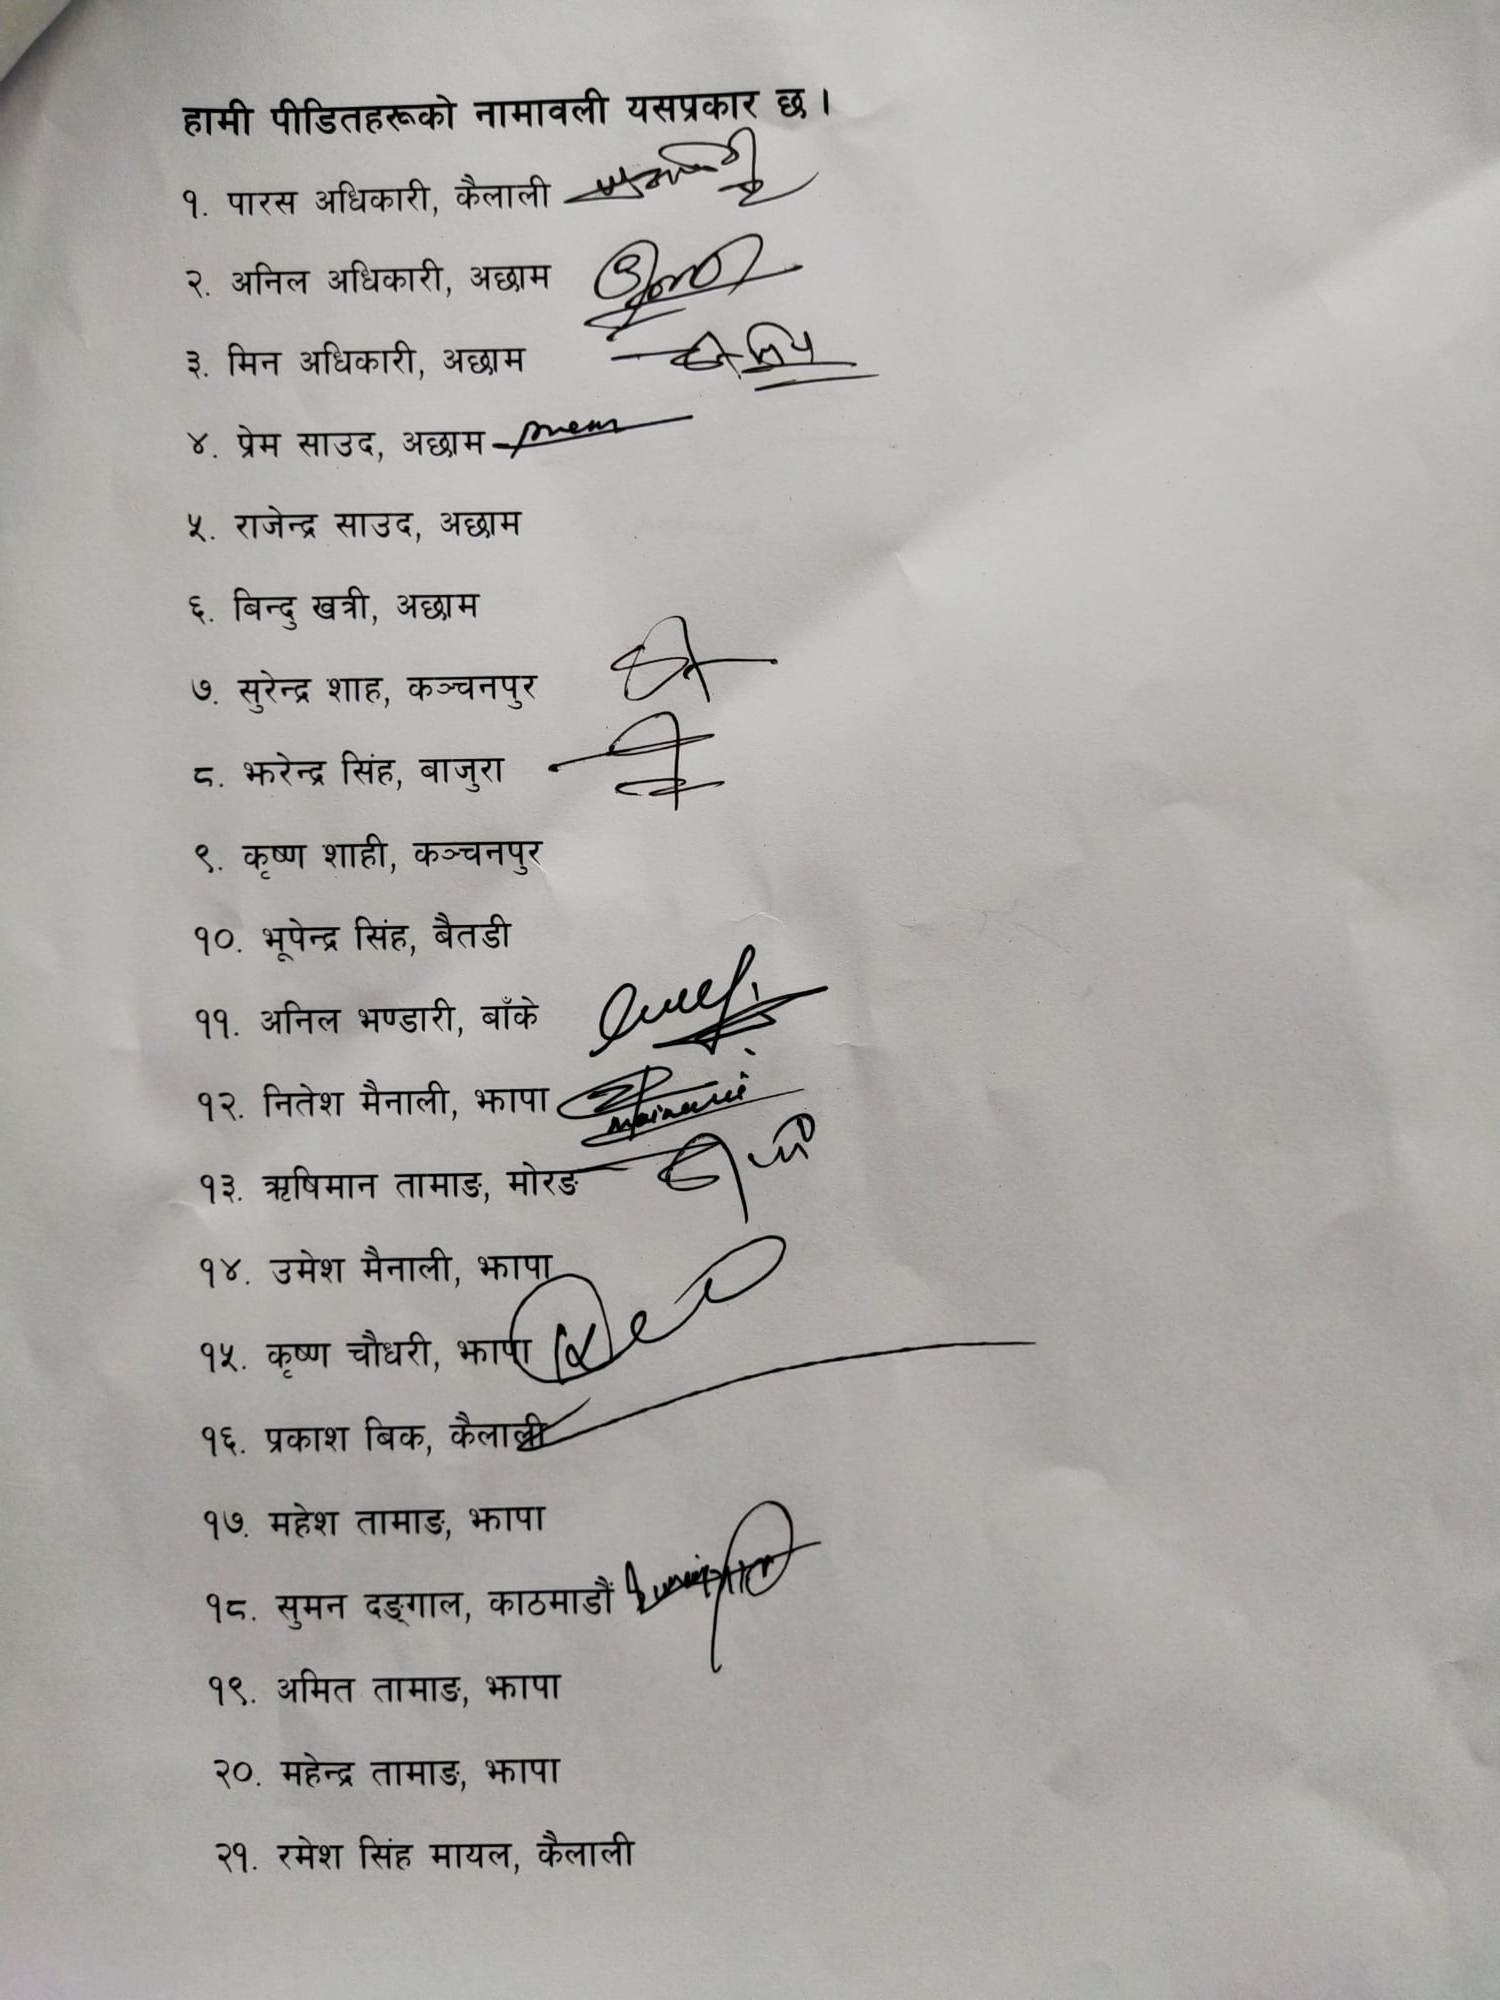 हामी पीडितहरूको नामावली यसप्रकार छ ।
१. पारस अधिकारी, कैलाली
२. अनिल अधिकारी, अछाम
३. मिन अधिकारी, अछाम
४. प्रेम साउद, अछाम
५. राजेन्द्र साउद, अछाम
६. बिन्दु खत्री, अछाम
७. सुरेन्द्र शाह, कञ्चनपुर
८. झरेन्द्र सिंह, बाजुरा
९. कृष्ण शाही, कञ्चनपुर
१०. भूपेन्द्र सिंह, बैतडी
११. अनिल भण्डारी, बाँके
१२. नितेश मैनाली, झापा
१३. ऋषिमान तामाङ, मोरङ
१४. उमेश मैनाली, झापा
१५. कृष्ण चौधरी, झापा
१६. प्रकाश बिक, कैलाली
१७. महेश तामाङ, झापा
१८. सुमन दङ्गाल, काठमाडौं
१९. अमित तामाङ, झापा
२०. महेन्द्र तामाङ, झापा
२१. रमेश सिंह मायल, कैलाली